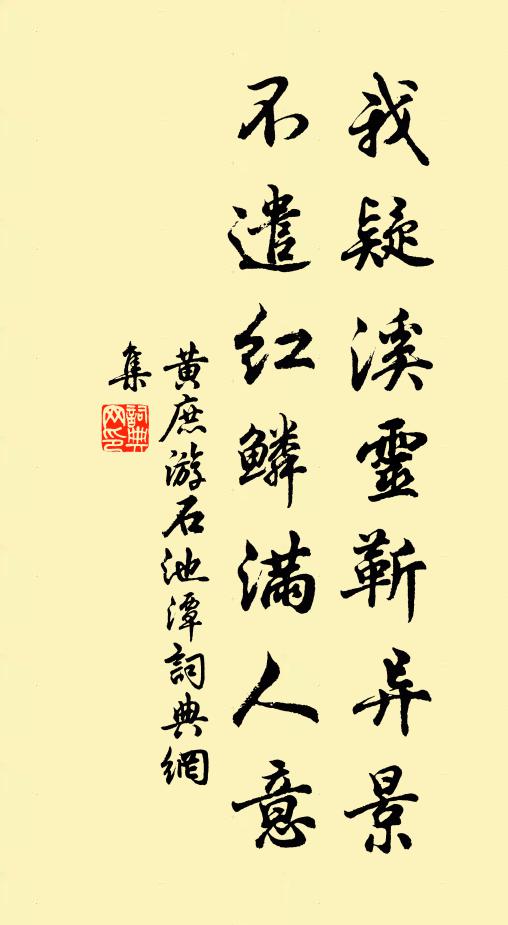 我疑溪靈蘄异景
不遣红鳞满人意
黄庶游石池潭詞典網
集
詞典网印